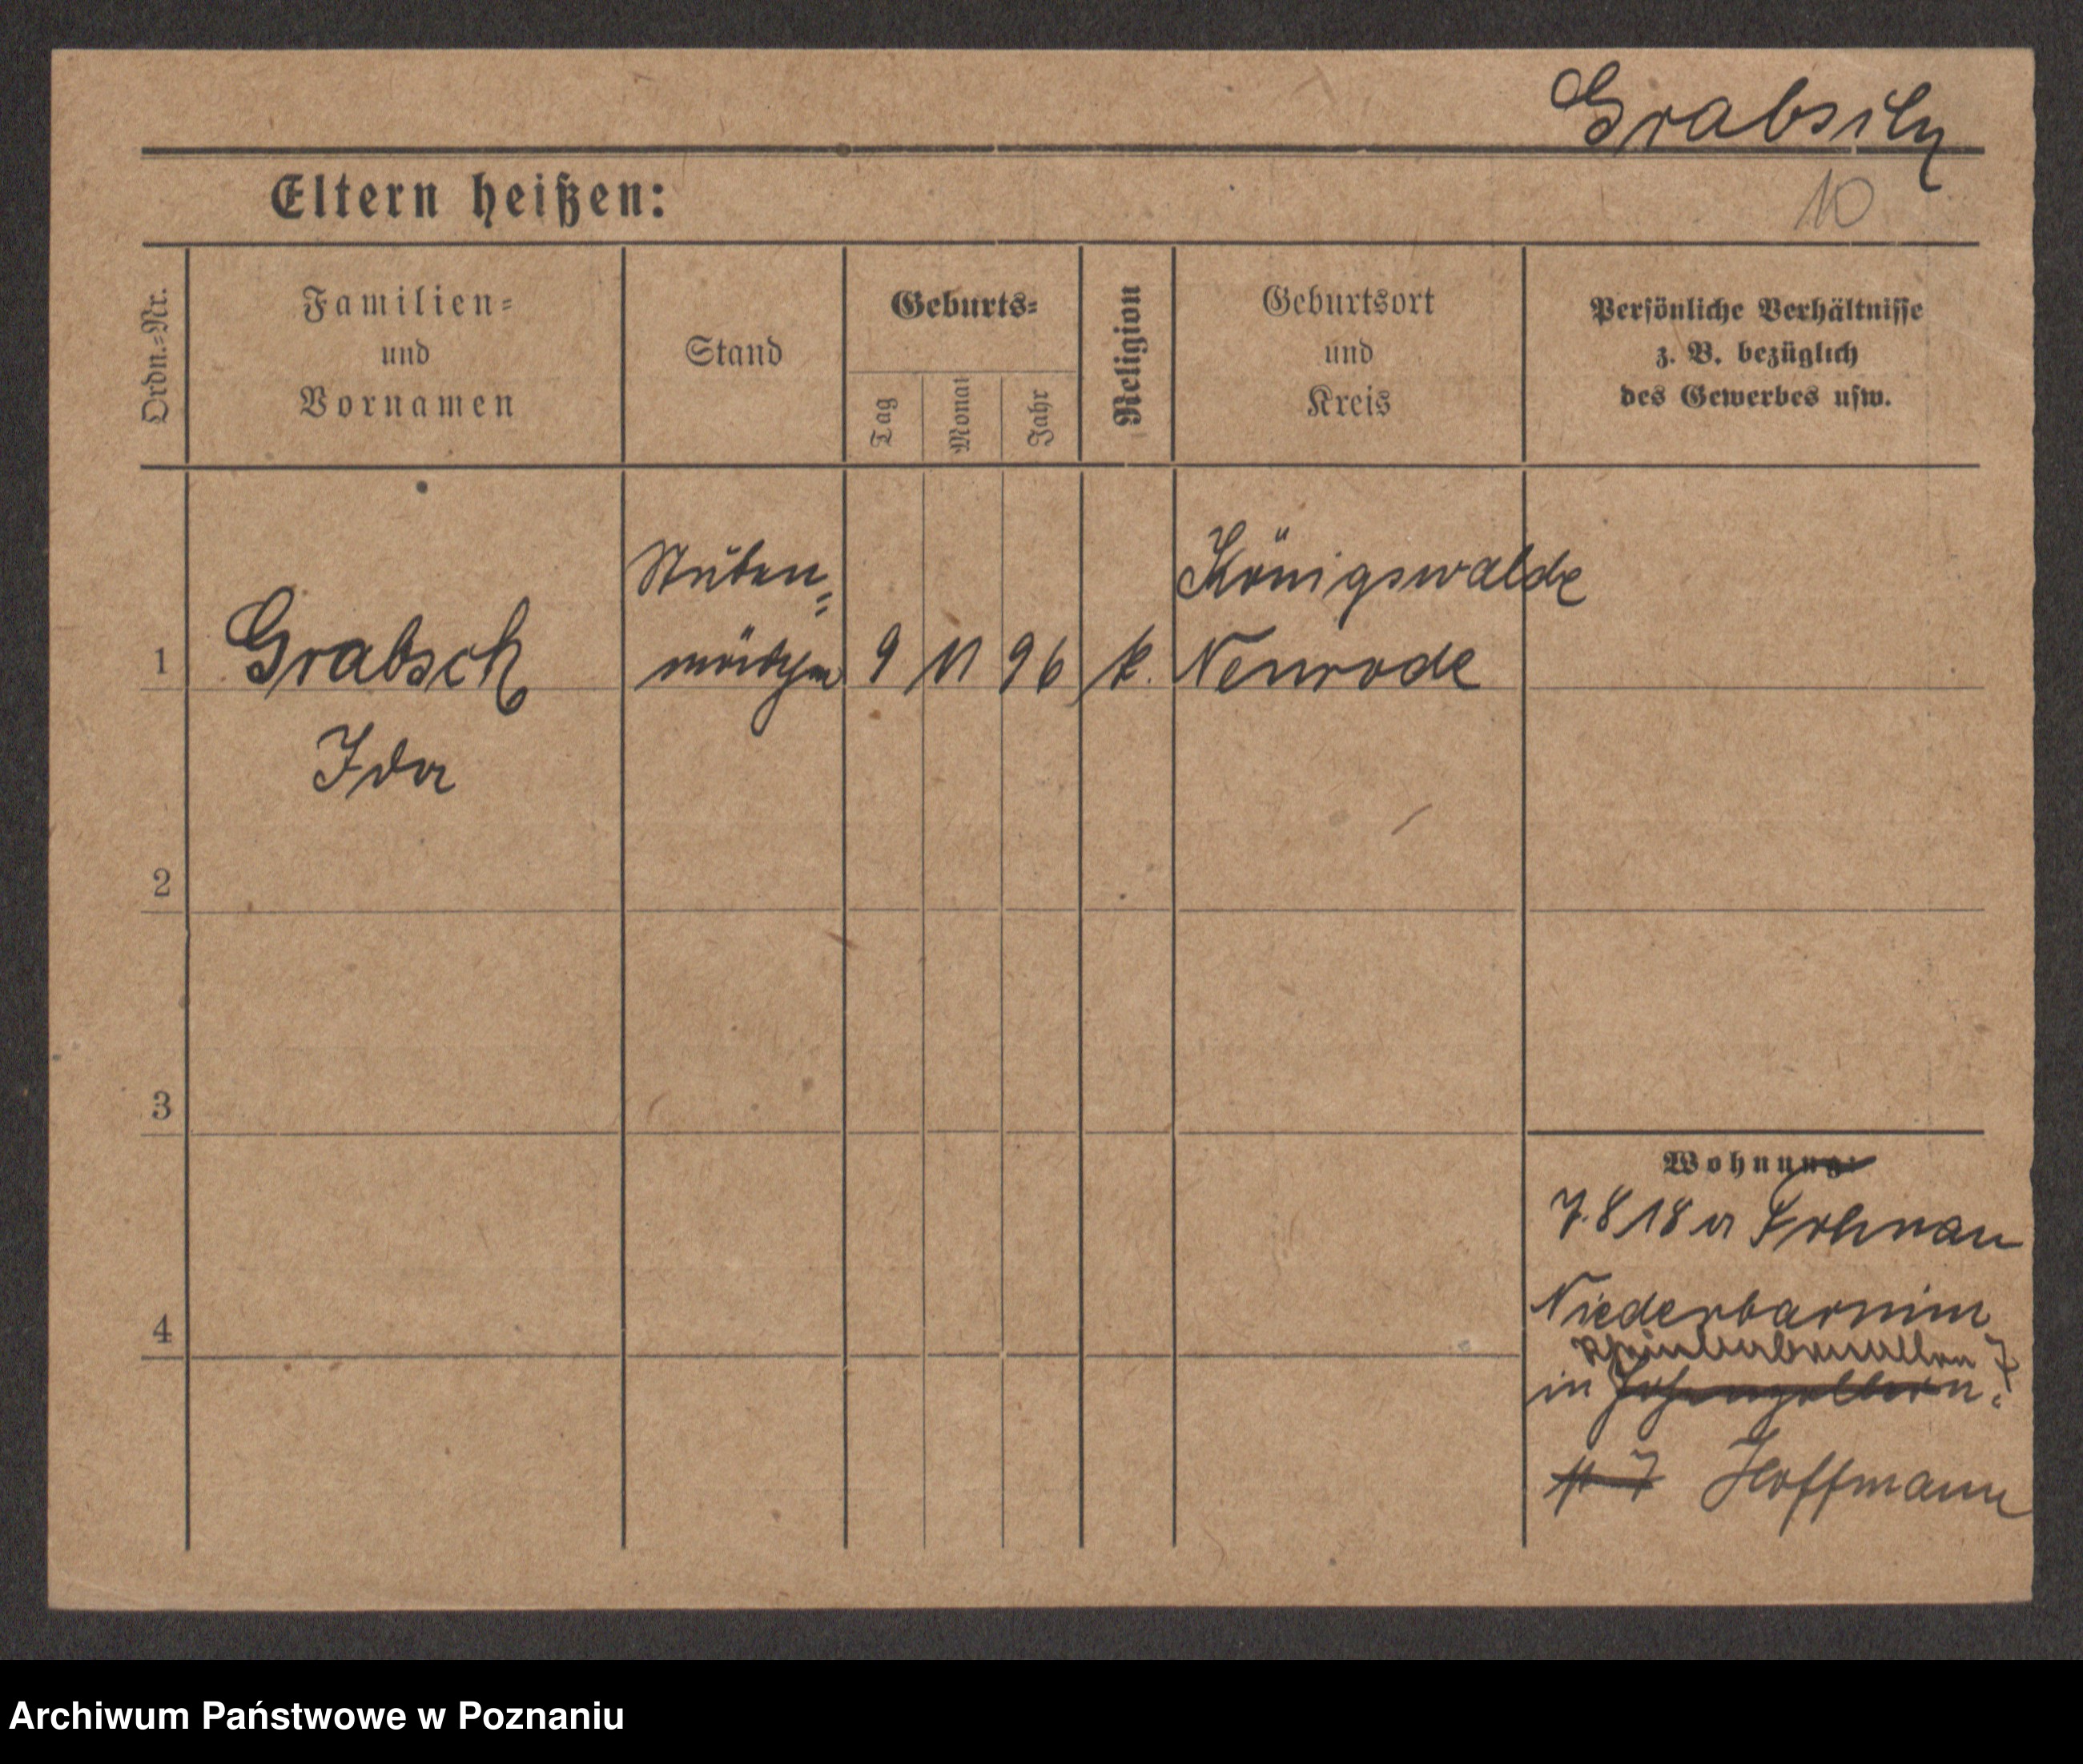 Grabsch
Eltern heißen:
10
Ordn.-Nr.
Familien-
und
Vornamen
Stand
Geburts-
Tag
Monat
Jahr
Religion
Geburtsort
und
Kreis
Persönliche Verhältnisse
z. B. bezüglich
des Gewerbes usw.
1
Grabsch
Ida
Stuben-
mädchen
9
11
96
k.
Königswalde
Neurode
2
3
4
Wohnung:
7.8 18 a Frohnau
Niederbarnim
in Hohenzollern
7 Hoffmann
Archiwum Państwowe w Poznaniu